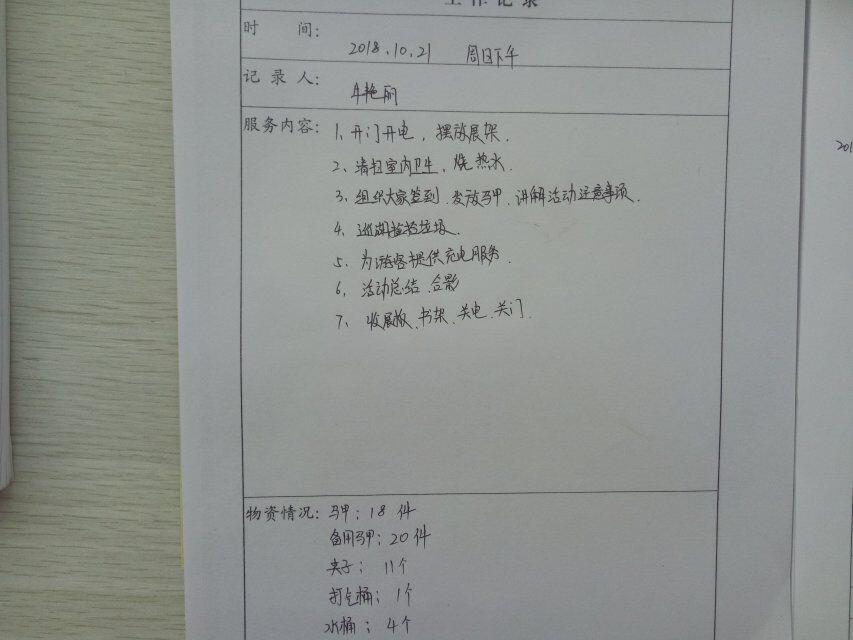 工作记录
时 间: 2018.10.21 周日下午
记 录 人: 牟艳丽
服务内容: 1、开门开电，摆放展架.
2、清扫室内卫生，烧热水.
3、组织大家签到、发放马甲、讲解活动注意事项.
4、巡湖捡拾垃圾.
5、为游客提供充电服务.
6、活动总结、合影
7、收展板、书架、关电、关门.
物资情况: 马甲：18 件
备用马甲：20 件
夹子： 11个
打气桶： 1个
水桶： 4个
201